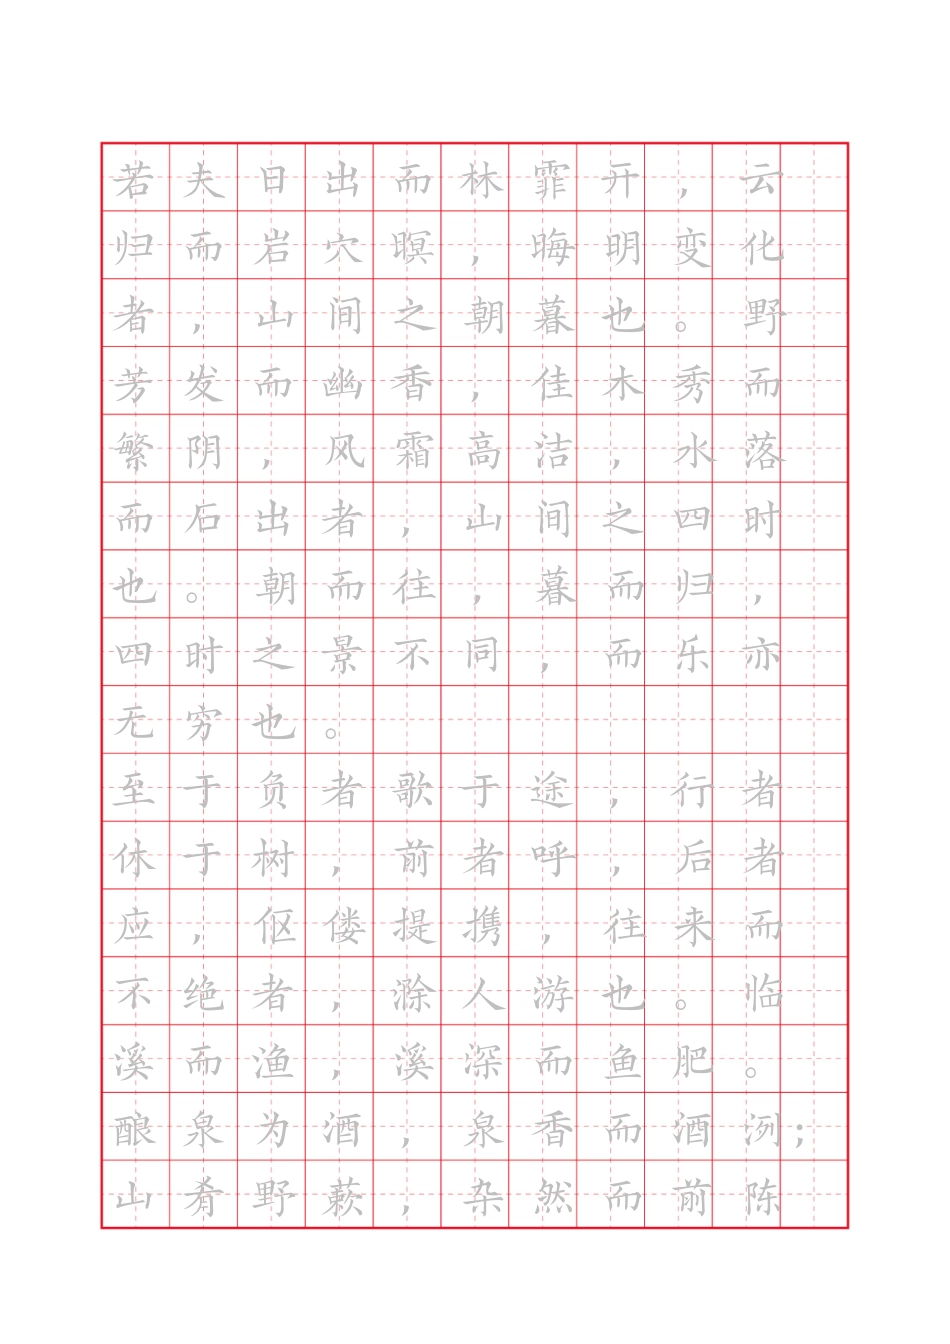 若夫日出而林霏开，云
归而岩穴暝，晦明变化
者，山间之朝暮也。野
芳发而幽香，佳木秀而
繁阴，风霜高洁，水落
而石出者，山间之四时
也。朝而往，暮而归，
四时之景不同，而乐亦
无穷也。
至于负者歌于途，行者
休于树，前者呼，后者
应，伛偻提携，往来而
不绝者，滁人游也。临
溪而渔，溪深而鱼肥。
酿泉为酒，泉香而酒洌；
山肴野蔌，杂然而前陈